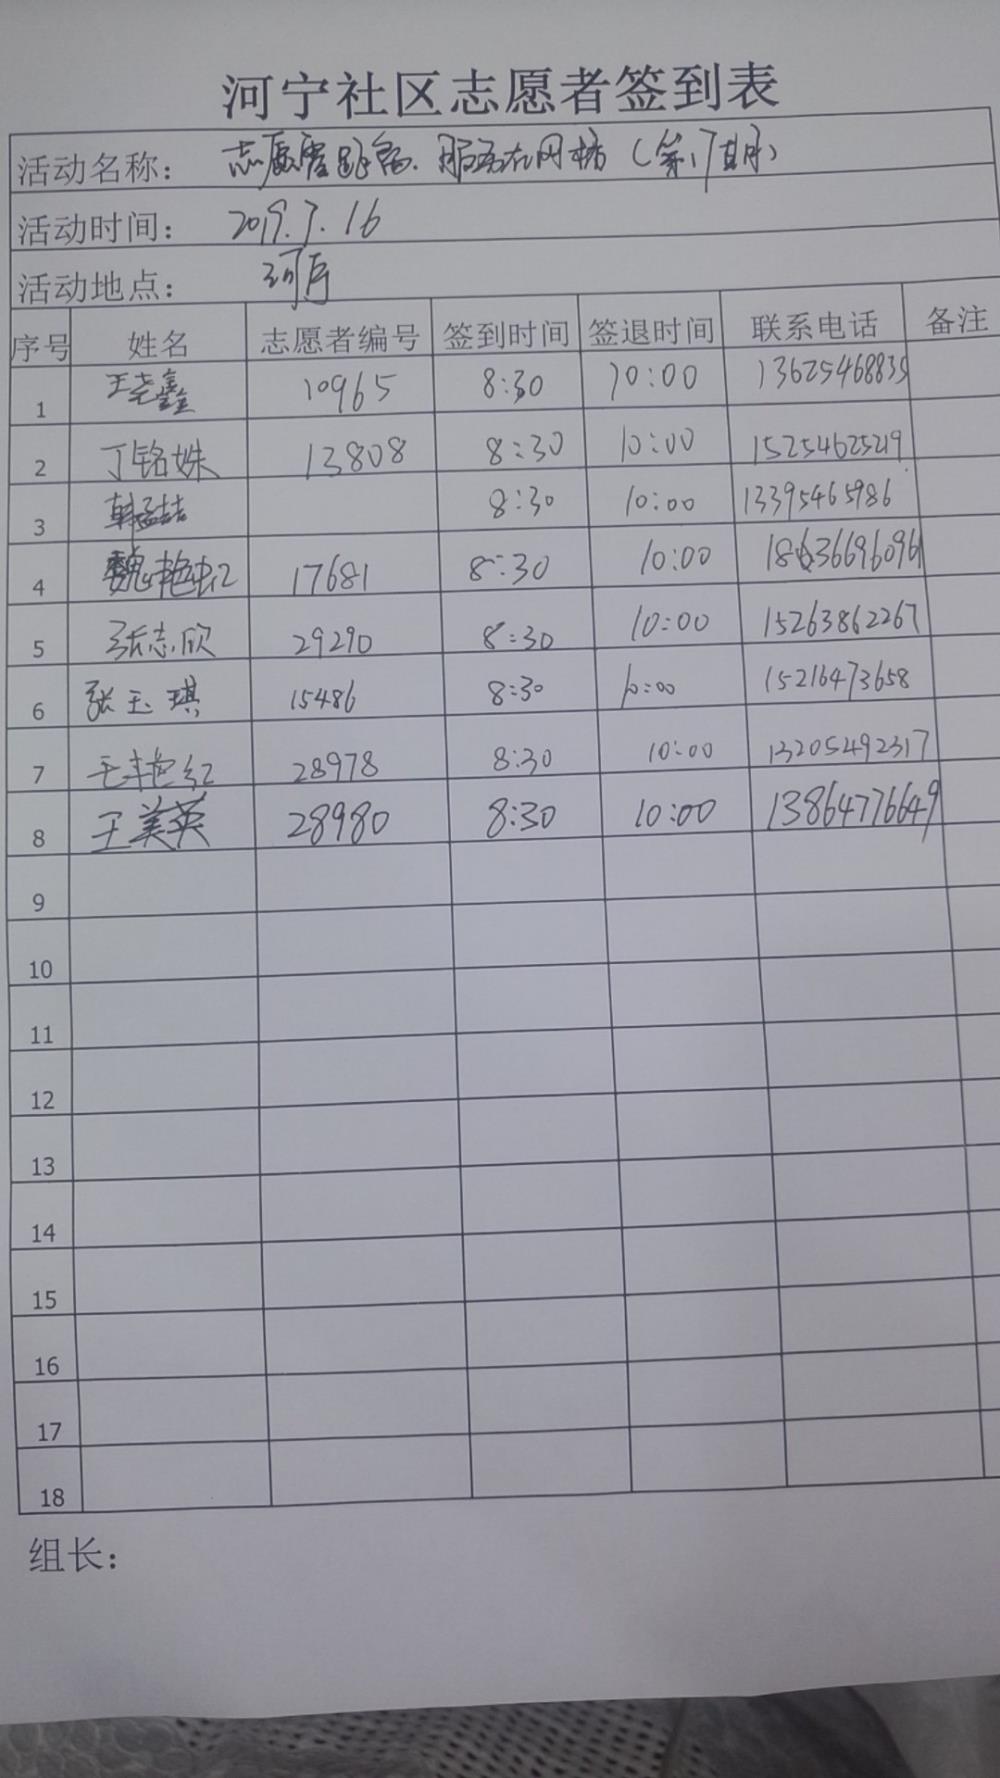 河宁社区志愿者签到表
活动名称： 志愿零距离、服务在网格（第17期）
活动时间： 2019.7.16
活动地点： 河宁
序号 姓名 志愿者编号 签到时间 签退时间 联系电话 备注
1 王尧鑫 10965 8:30 10:00 13625468835
2 丁铭姝 13808 8:30 10:00 15254625219
3 韩孟喆 8:30 10:00 13395465986
4 魏艳虹 17681 8:30 10:00 18636696096
5 张志欣 29290 8:30 10:00 15263862267
6 张玉琪 15486 8:30 10:00 15216473658
7 毛艳红 28978 8:30 10:00 13205492317
8 王美英 28980 8:30 10:00 13864776649
9
10
11
12
13
14
15
16
17
18
组长：